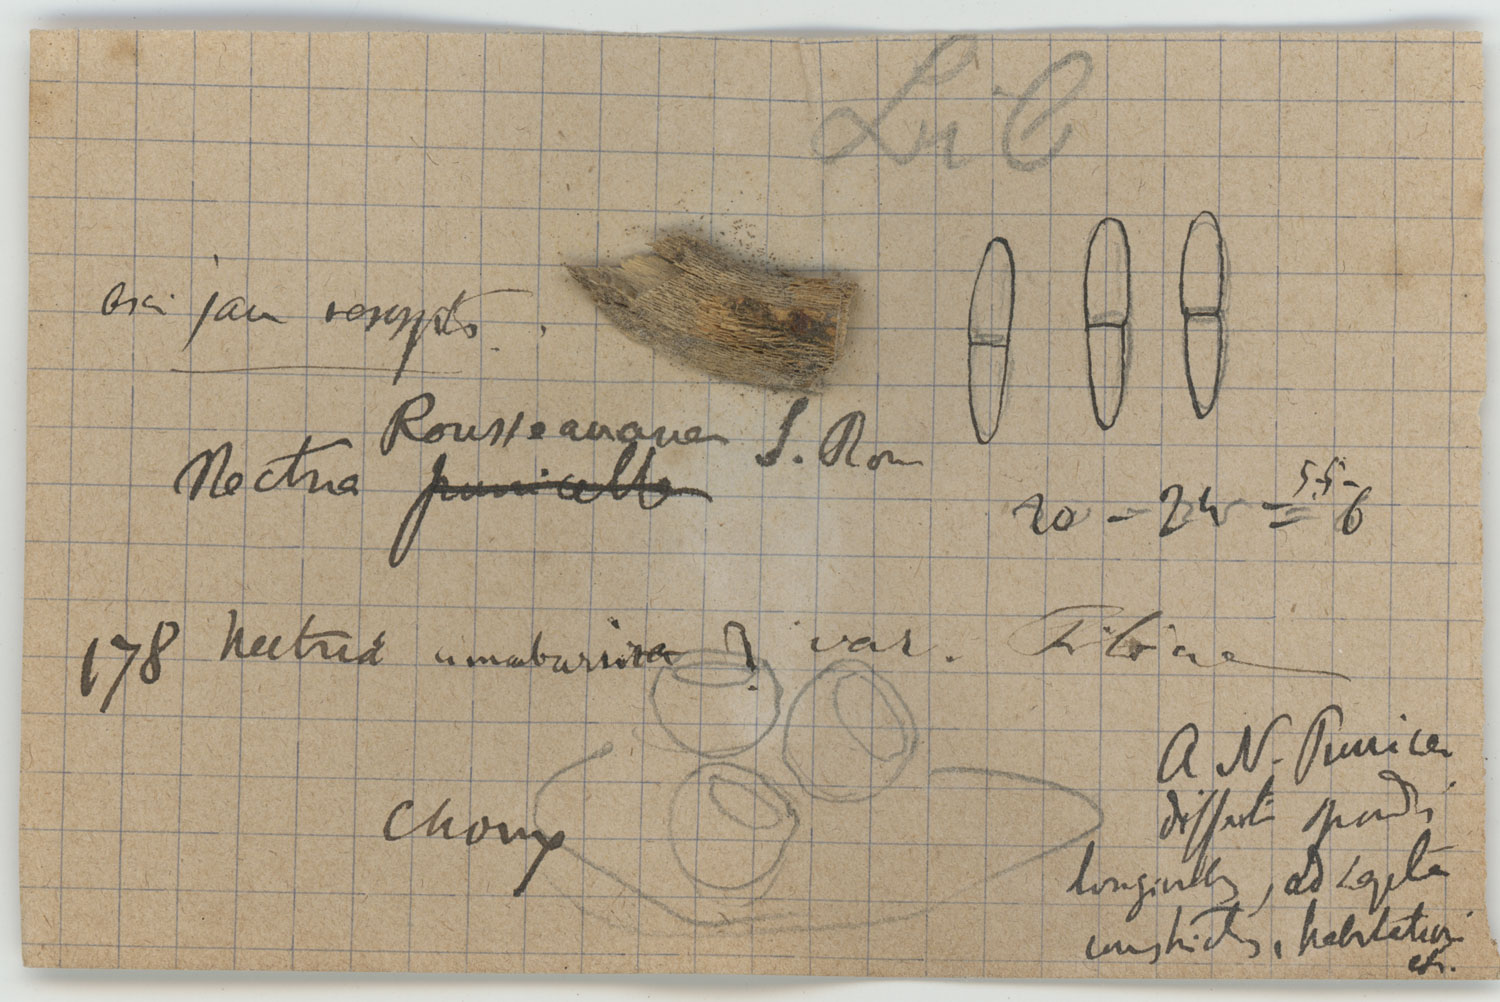 Lib
asci jam resorpti.
Rousseauana S. Rou
Nectria punicella
20 - 24 = 5.5-6
178 Nectria cinnabarina ? var. Tiliae
Chomp
A N. Punicea
differt sporidi
longioribus, ad septa
constrictis, habitatione
etc.